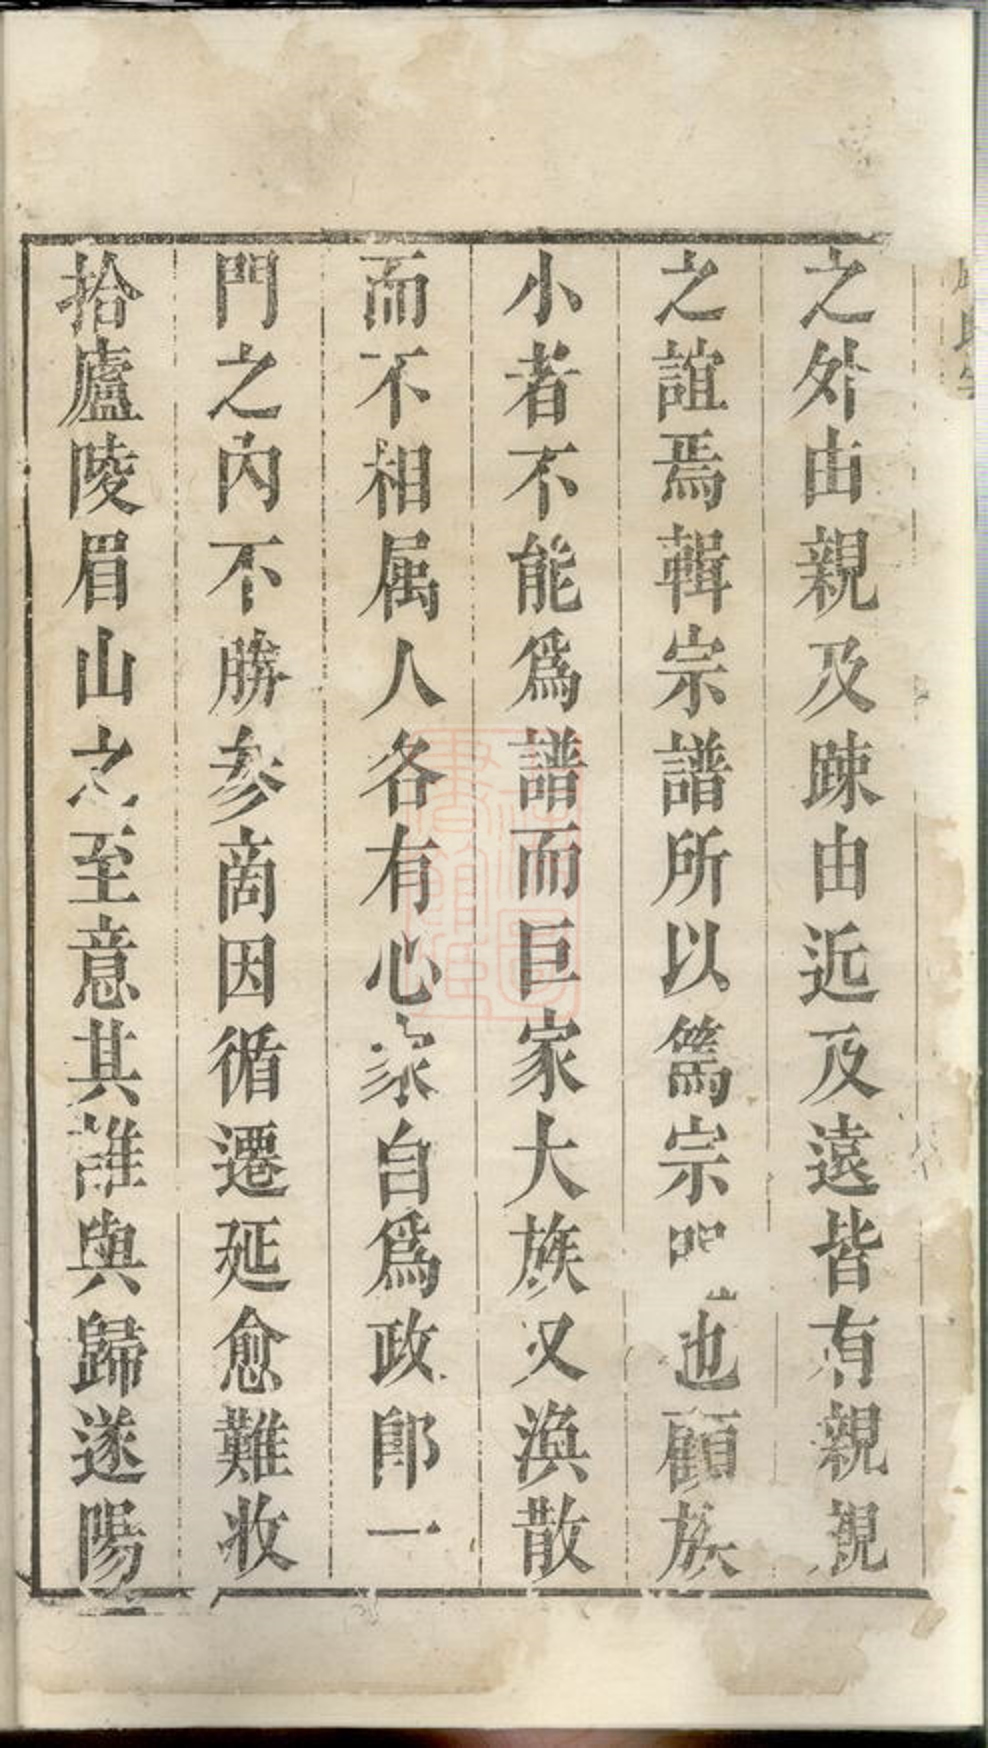 之外由親及踈由近及遠皆有親親
之誼焉輯宗譜所以篤宗也顧族
小者不能爲譜而巨家大族又渙散
而不相属人各有心家自爲政郎一
門之內不勝參啇因循遷延愈難收
拾廬陵眉山之至意其誰與歸遂陽